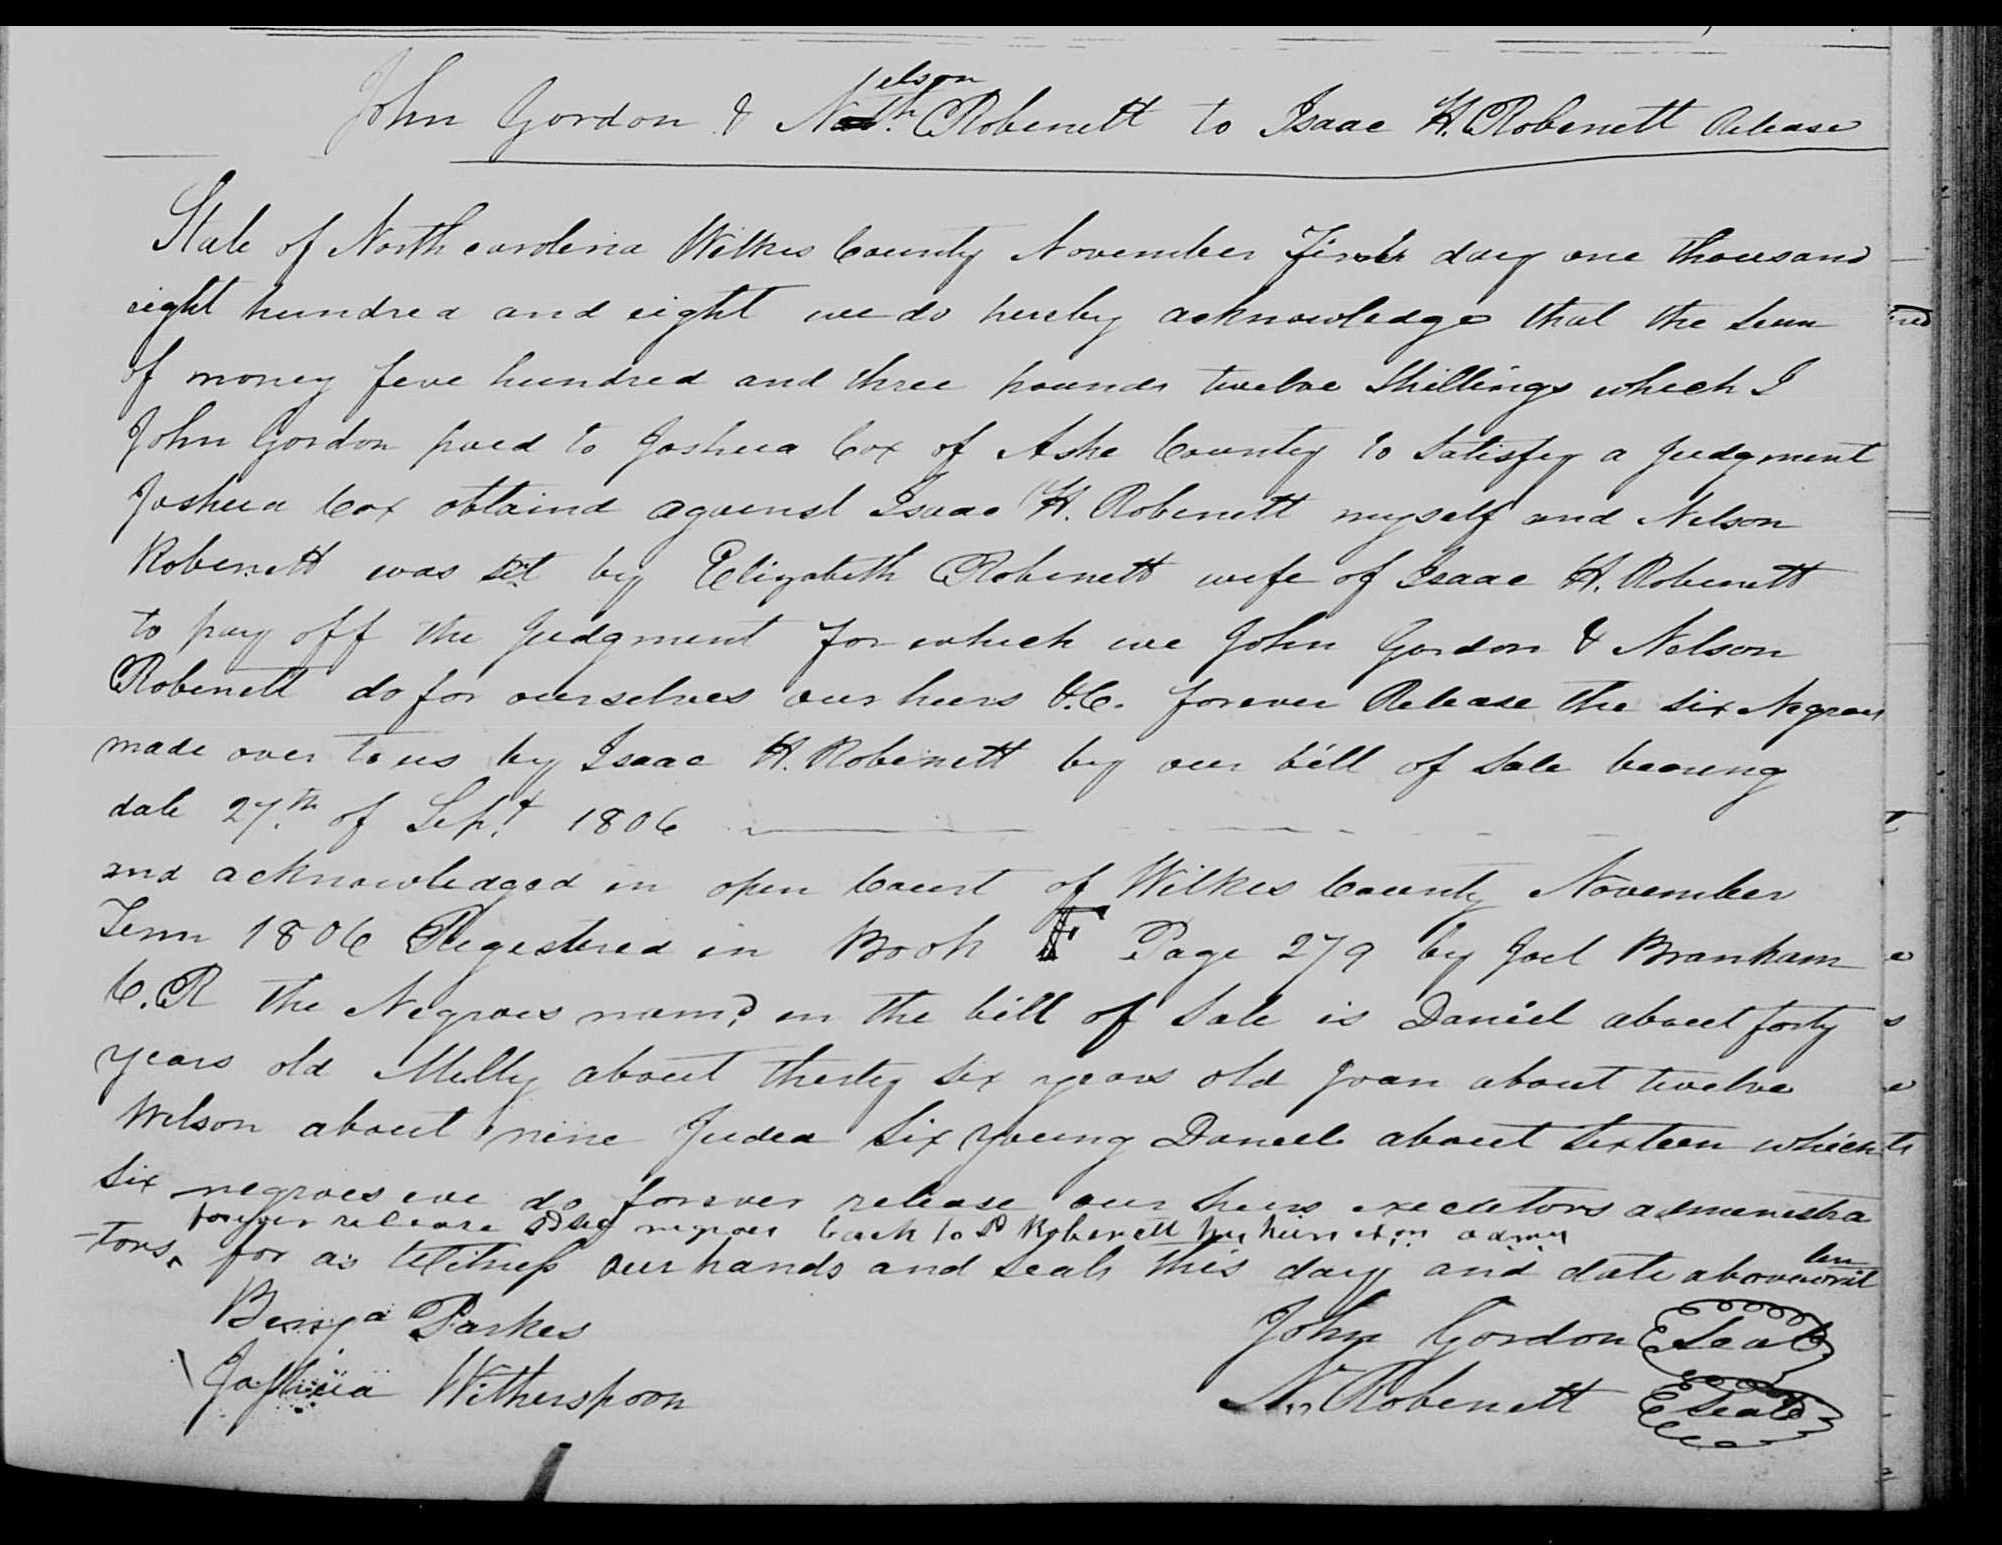 elson
John Gordon & Nath. Robenett to Isaac H. Robenett Release
State of North carolina Wilkes County November First day one thousand
eight hundred and eight we do hereby acknowledge that the sum
of money five hundred and three pounds twelve Shillings which I
John Gordon paid to Joshua Cox of Ashe County to Satisfy a Judgment
Joshua Cox obtaind against Isaac H. Robenett myself and Nelson
Robenett was set by Elizabeth Robenett wife of Isaac H. Robenett
to pay off the Judgment for which we John Gordon & Nelson
Robenett do for ourselves our heirs &C. forever Release the six Negroes
made over to us by Isaac H. Robenett by our bill of Sale bearing
date 27th of Sept 1806
and acknowledged in open Court of Wilkes County November
Term 1806 Registered in Book F Page 279 by Joel Branham
C.R the Negroes namd in the bill of Sale is Daniel about forty
years old Milly about thirty six years old Joan about twelve
Wilson about nine Judea Six young Daniel about Sixteen which
six negroes we do forever release our heirs executors administra
forever release negroes back to Sd Robenett his heirs exrs admrs
-tors for as Witness our hands and seals this day and date above writ
ten
Benja Parkes
John Gordon Seal
Joshua Witherspoon
N. Robenett Seal